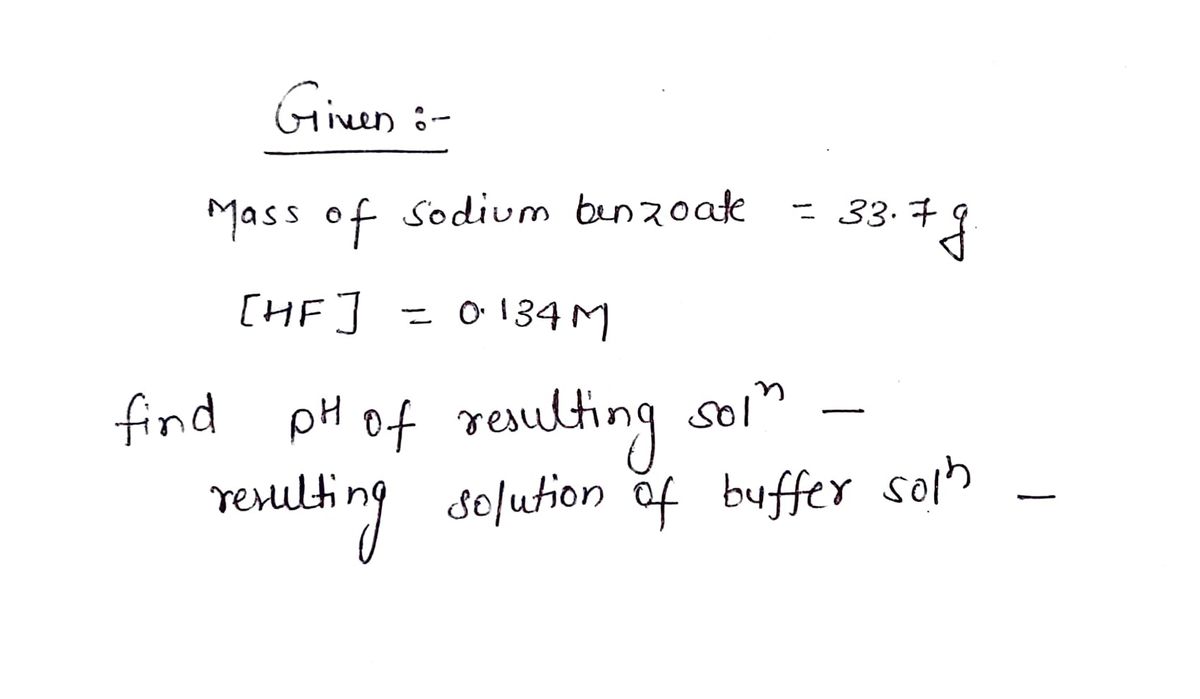 Given :-
Mass of sodium benzoate = 33.7 g
[HF] = 0.134 M
find pH of resulting solⁿ -
resulting solution of buffer solⁿ -